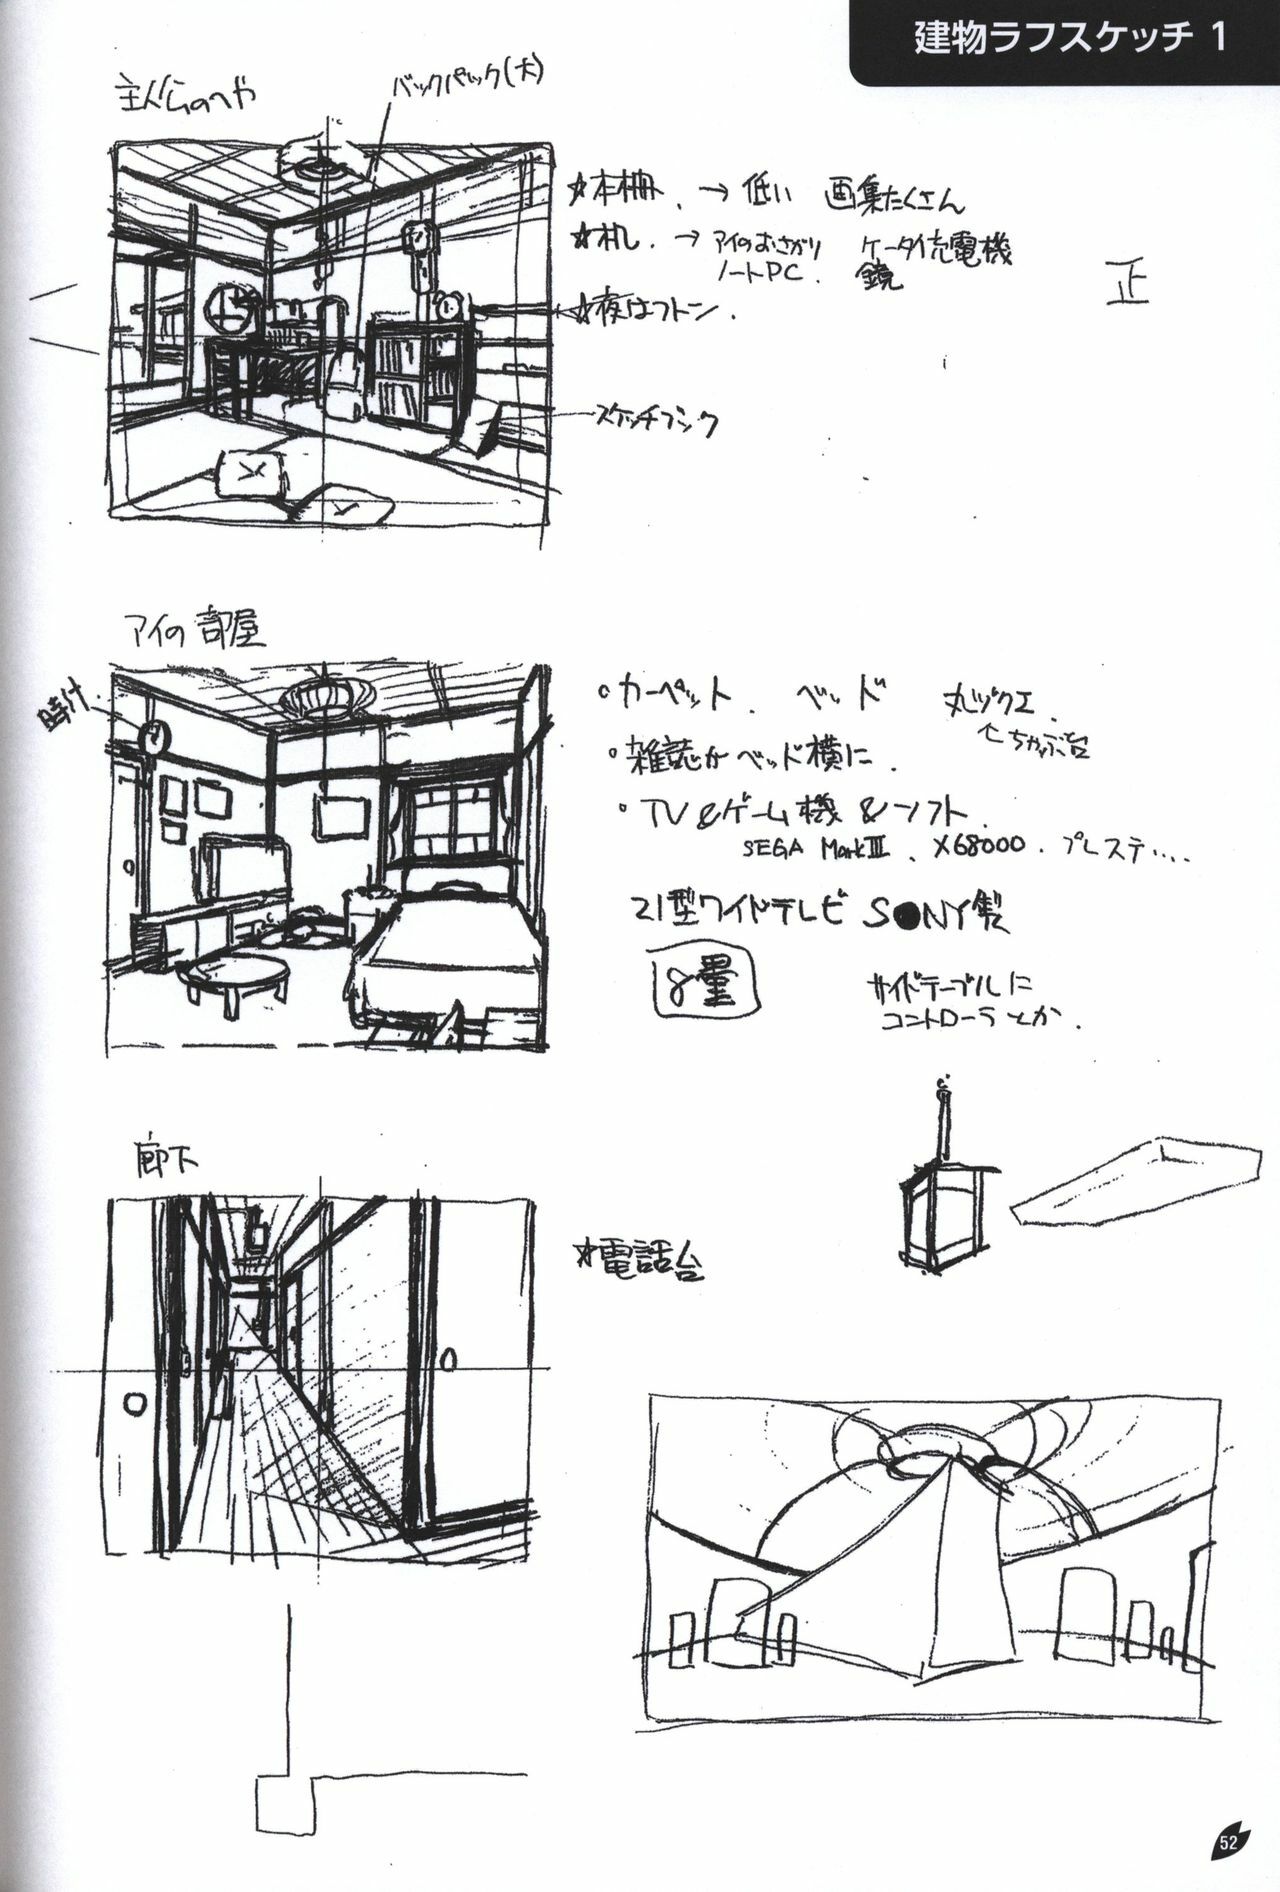 建物ラフスケッチ 1
主人公のへや
バックパック(大)
☆本棚. → 低い 画集たくさん
☆机. → アイのおさがり ケータイ充電機
ノートPC. 鏡
正
☆夜はフトン.
スケッチブック
アイの部屋
時計
・カーペット. ベッド 丸ヅクエ.
ちゃぶ台
・雑誌がベッド横に.
・TV&ゲーム機&ソフト.
SEGA MarkⅢ. X68000. プレステ....
21型ワイドテレビ S●NY製
8畳
サイドテーブルに
コントローラとか.
廊下
☆電話台
52